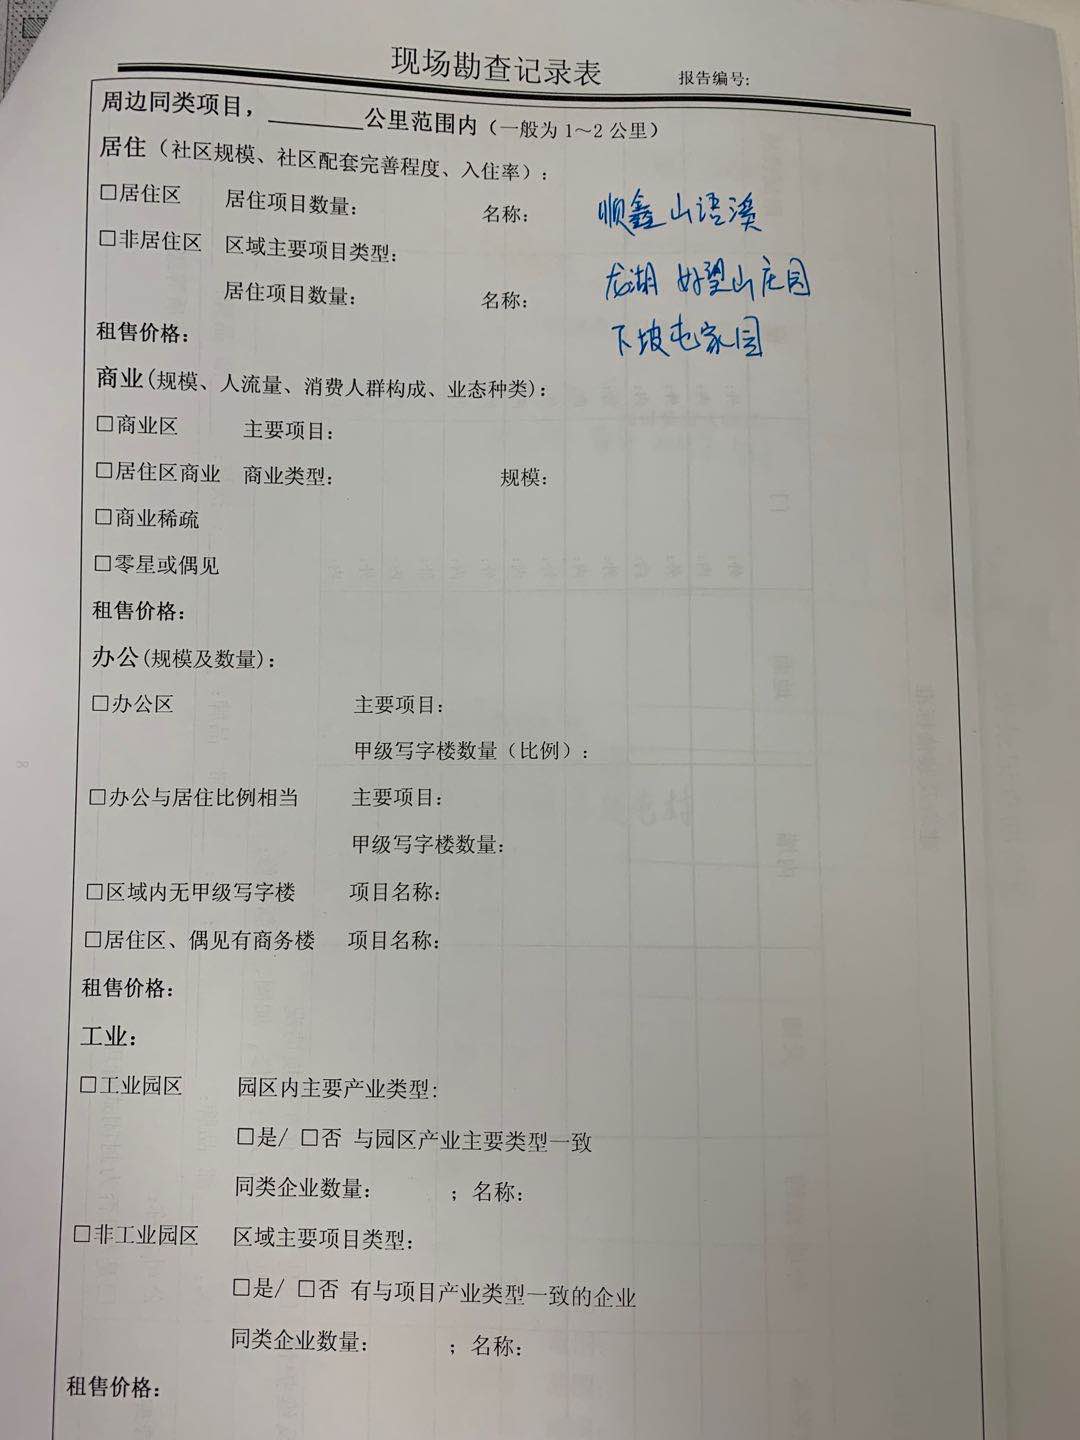 现场勘查记录表 报告编号:
周边同类项目，________公里范围内（一般为 1～2 公里）
居住（社区规模、社区配套完善程度、入住率）:
□居住区 居住项目数量: 名称: 顺鑫山语溪
□非居住区 区域主要项目类型:
龙湖 好望山庄园
居住项目数量: 名称:
下坡屯家园
租售价格:
商业(规模、人流量、消费人群构成、业态种类):
□商业区 主要项目:
□居住区商业 商业类型: 规模:
□商业稀疏
□零星或偶见
租售价格:
办公(规模及数量):
□办公区 主要项目:
甲级写字楼数量（比例）:
□办公与居住比例相当 主要项目:
甲级写字楼数量:
□区域内无甲级写字楼 项目名称:
□居住区、偶见有商务楼 项目名称:
租售价格:
工业:
□工业园区 园区内主要产业类型:
□是/ □否 与园区产业主要类型一致
同类企业数量: ；名称:
□非工业园区 区域主要项目类型:
□是/ □否 有与项目产业类型一致的企业
同类企业数量: ；名称:
租售价格: